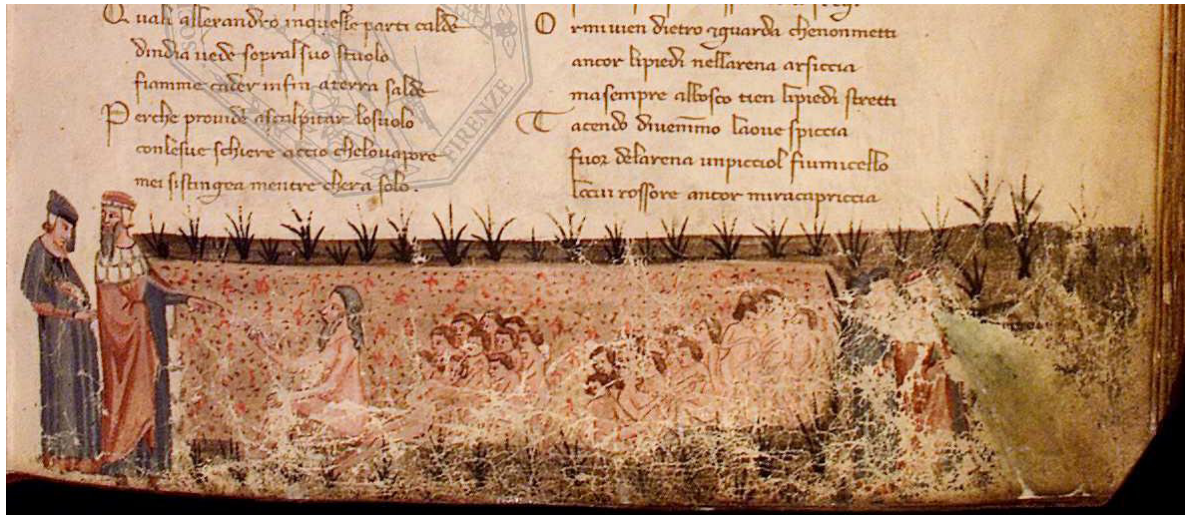 Quali allexandro inqueste parti calde
dindia uede sopral suo stuolo
fiamme cader infin aterra salde
Perche prouide ascalpitar losuolo
conlesue schiere accio chelouapore
mei sistingea mentre chera solo.
Ormi uien dietro ⁊ guarda chenonmetti
ancor lipiedi nellarena arsiccia
masempre albosco tien lipiedi stretti
Tacendo diuenīmo laoue spiccia
fuor delarena unpicciol fiumicello
locui rossore ancor miracapriccia
FIRENZE